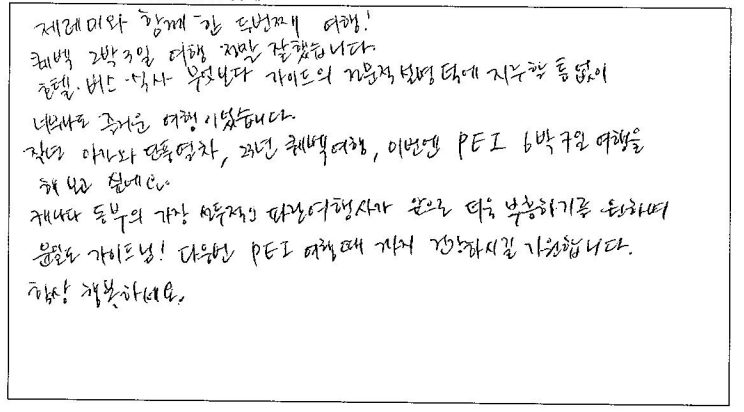 제레미와 함께 한 두번째 여행!
퀘벡 2박3일 여행 정말 잘했습니다.
호텔·버스·식사 무엇보다 가이드의 전문적 설명 덕에 지루할 틈없이
너무나도 즐거운 여행이었습니다.
작년 아가와 단풍열차, 올해 퀘벡여행, 이번엔 PEI 6박7일 여행을
해 보고 싶네요.
캐나다 동부의 가장 선두적인 파란여행사가 앞으로 더욱 부흥하기를 원하며
가이드님! 다음번 PEI 여행때 까지 건강하시길 기원합니다.
항상 행복하세요.